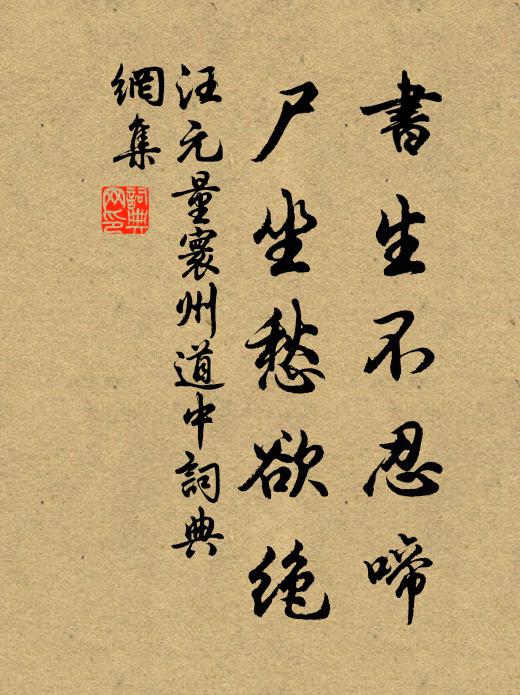 書生不忍啼
尸坐愁欲絶
汪元量寰州道中詞典
網集
詞典
网印